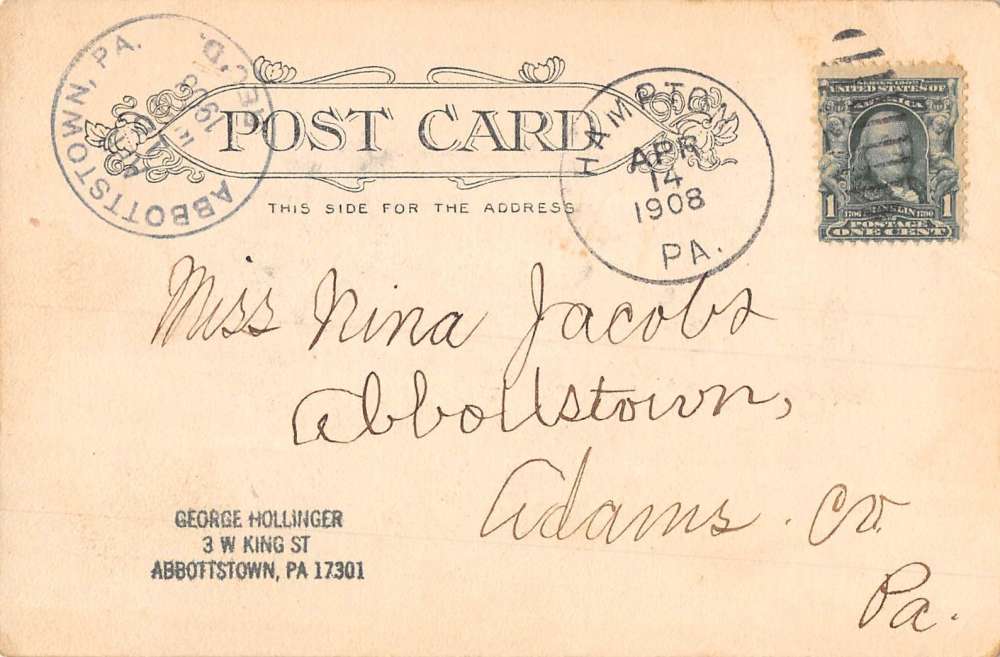 ABBOTTSTOWN, PA.
REC'D.
1908
POST CARD
THIS SIDE FOR THE ADDRESS
HAMPTON
APR
14
1908
PA.
UNITED STATES OF
AMERICA
1 1706 FRANKLIN 1790 1
POSTAGE
ONE CENT
Miss Nina Jacobs
Abbottstown,
Adams. Co.
Pa.
GEORGE HOLLINGER
3 W KING ST
ABBOTTSTOWN, PA 17301